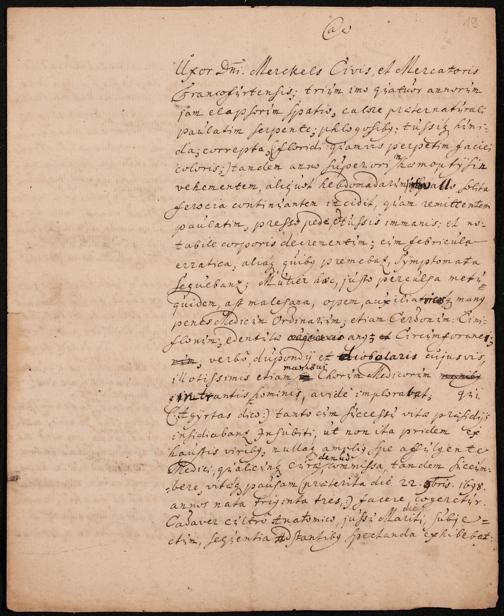 19
Uxor Dni. Merckels Civis et Mercatoris
Francofurtensis; trium imo quatuor annorum
jam elapsorum spatio, calore præternaturali
paulatim serpente; phlogosi; tussi
da; correpta, (floridi quamvis perpetim faciei
coloris;) tandem anno superiori hæmoptysin
vehementem, aliquot hebdomadarum solita
ferocia continuantem incidit, quam remittentem
paulatim, presso pede tussis immanis; et no-
tabile corporis decrementum; cum febricula
erratica, aliaq quibus premebat, symptomata
sequebant; Mulier hæc, justo perculsa metu
quidem, ast malesana, opem, auxiliatrices manus
penes Medicum Ordinarium; etiam Cerdonum
edentulo anus et Circumforanei;
verbo, dupondij et diobolaris cujusvis,
illotissimis etiam manibus Chorum Medicorum
intrantis hominis, avide implorabat; qui
(Agyrtas dico;) tanto cum successu vitæ præsidijs
insidiabant, ut non ita pridem ex
haustis viribus, nullaq amplius spe affulgente
Medici, qualicunq curæ denuo commissa, tandem succum-
bere, vitæq pausam (præterita die 22. 9bris. 1698.
annos nata triginta tres,) facere, cogeretur.
Cadaver cultro Anatomico, jussu Mariti, subje-
ctum, sequentia Adstantibus spectanda exhibebat: